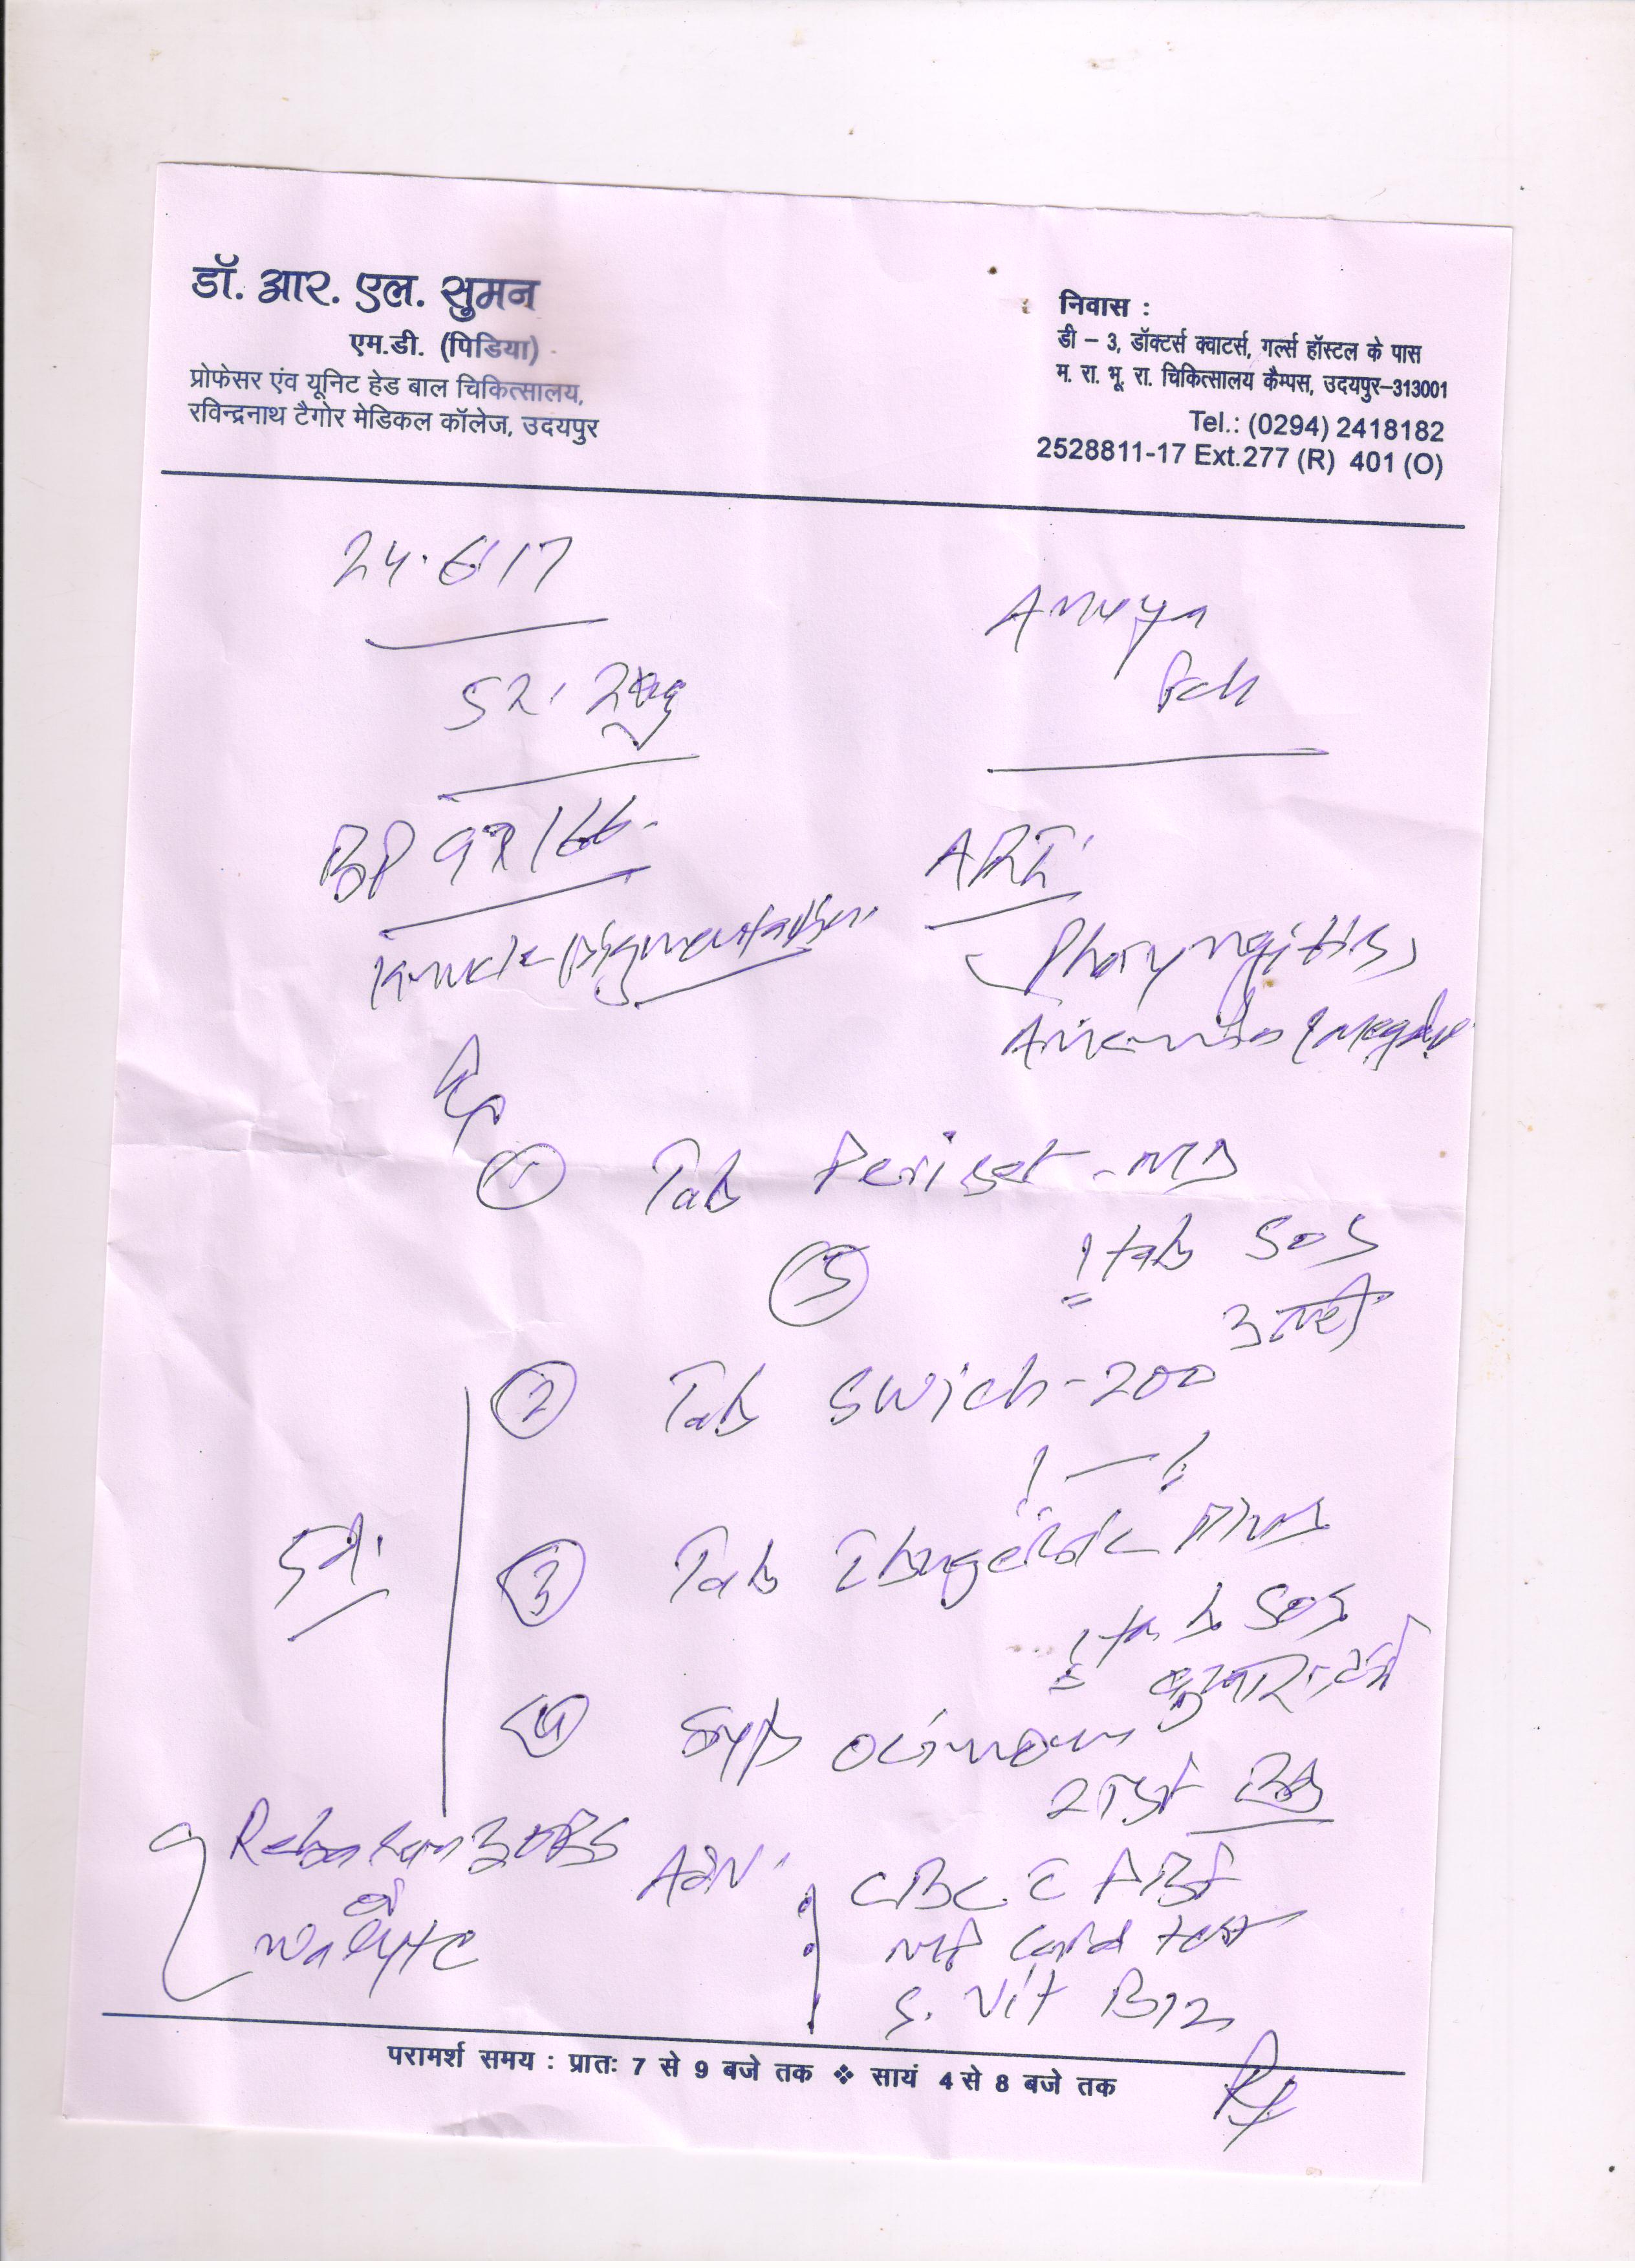 डॉ. आर. एल. सुमन
एम.डी. (पिडिया)
प्रोफेसर एंव यूनिट हेड बाल चिकित्सालय,
रविन्द्रनाथ टैगोर मेडिकल कॉलेज, उदयपुर
निवास :
डी – 3, डॉक्टर्स क्वाटर्स, गर्ल्स हॉस्टल के पास
म. रा. भू. रा. चिकित्सालय कैम्पस, उदयपुर–313001
Tel.: (0294) 2418182
2528811-17 Ext.277 (R) 401 (O)
24.6.17
52.2kg
BP 98/66
Knuckle pigmentation
ARI
Pharyngitis
① Tab Periset-MD
1 tab SOS
⑤ उल्टी
② Tab Swich-200
1 — 1
5 दि.
③ Tab Ibugesic Plus
1 tab SOS
बुखार, दर्द
④ Syp
2 TSF BD
ORS
Walyte
Adv.
CBC c PBF
MP Card test
S. Vit B12
परामर्श समय : प्रातः 7 से 9 बजे तक ❖ सायं 4 से 8 बजे तक